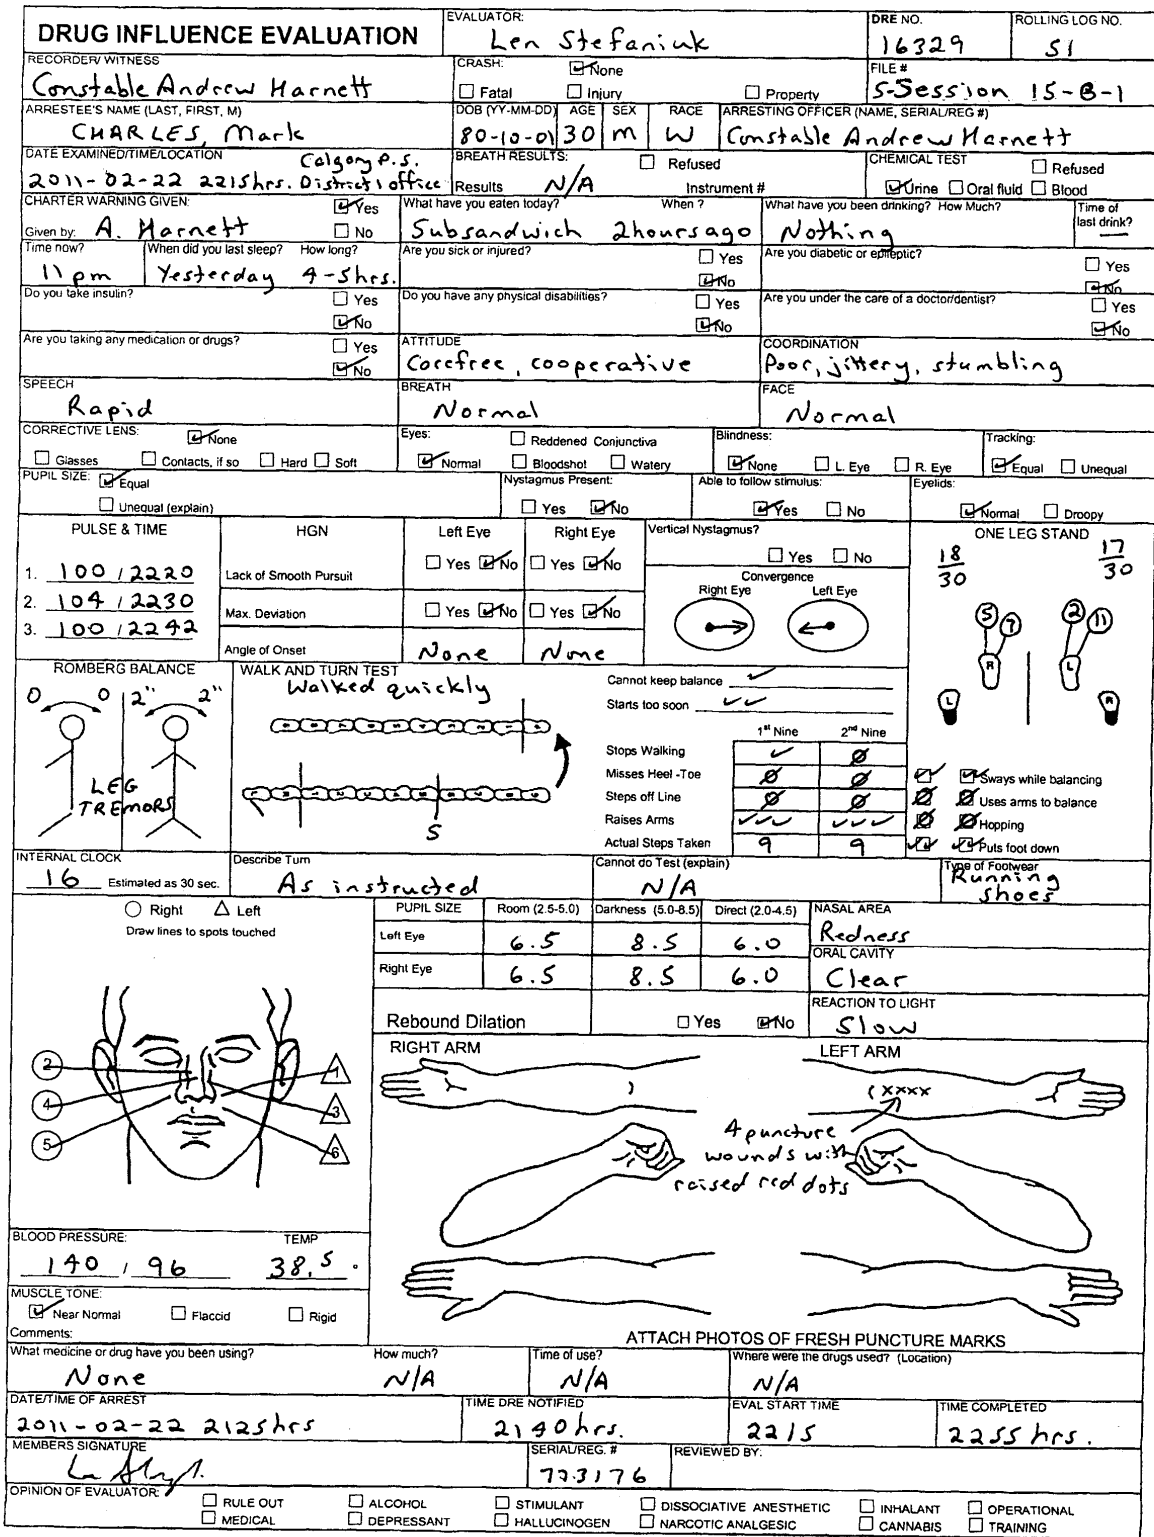 DRUG INFLUENCE EVALUATION
EVALUATOR:
Len Stefaniuk
DRE NO.
16329
ROLLING LOG NO.
51
RECORDER/ WITNESS
Constable Andrew Harnett
CRASH: None
Fatal Injury Property
FILE #
S-Session 15-B-1
ARRESTEE'S NAME (LAST, FIRST, M)
CHARLES, Mark
DOB (YY-MM-DD) AGE SEX RACE
80-10-01 30 M W
ARRESTING OFFICER (NAME, SERIAL/REG #)
Constable Andrew Harnett
DATE EXAMINED/TIME/LOCATION Calgary P.S.
2011-02-22 2215hrs. District 1 office
BREATH RESULTS: Refused
Results N/A Instrument #
CHEMICAL TEST Refused
Urine Oral fluid Blood
CHARTER WARNING GIVEN: Yes
Given by: A. Harnett No
What have you eaten today? When ?
Subsandwich 2hours ago
What have you been drinking? How Much?
Nothing
Time of
last drink?
—
Time now?
11 pm
When did you last sleep? How long?
Yesterday 4-5hrs.
Are you sick or injured? Yes
No
Are you diabetic or epileptic?
Yes
No
Do you take insulin? Yes
No
Do you have any physical disabilities? Yes
No
Are you under the care of a doctor/dentist? Yes
No
Are you taking any medication or drugs? Yes
No
ATTITUDE
Carefree, cooperative
COORDINATION
Poor, jittery, stumbling
SPEECH
Rapid
BREATH
Normal
FACE
Normal
CORRECTIVE LENS: None
Glasses Contacts, if so Hard Soft
Eyes: Reddened Conjunctiva
Normal Bloodshot Watery
Blindness:
None L. Eye R. Eye
Tracking:
Equal Unequal
PUPIL SIZE: Equal
Unequal (explain)
Nystagmus Present:
Yes No
Able to follow stimulus:
Yes No
Eyelids:
Normal Droopy
PULSE & TIME
1. 100 / 2220
2. 104 / 2230
3. 100 / 2242
HGN Left Eye Right Eye
Lack of Smooth Pursuit Yes No Yes No
Max. Deviation Yes No Yes No
Angle of Onset None None
Vertical Nystagmus?
Yes No
Convergence
Right Eye Left Eye
ONE LEG STAND
18 17
30 30
5 7 2 11
R L
L R
Sways while balancing
Uses arms to balance
Hopping
Puts foot down
ROMBERG BALANCE
0 0 2" 2"
LEG
TREMORS
WALK AND TURN TEST
Walked quickly
S
Cannot keep balance
Starts too soon
1st Nine 2nd Nine
Stops Walking
Misses Heel -Toe
Steps off Line
Raises Arms
Actual Steps Taken 9 9
INTERNAL CLOCK
16 Estimated as 30 sec.
Describe Turn
As instructed
Cannot do Test (explain)
N/A
Type of Footwear
Running
shoes
Right Left
Draw lines to spots touched
2 1
4 3
5 6
PUPIL SIZE Room (2.5-5.0) Darkness (5.0-8.5) Direct (2.0-4.5)
Left Eye 6.5 8.5 6.0
Right Eye 6.5 8.5 6.0
Rebound Dilation Yes No
NASAL AREA
Redness
ORAL CAVITY
Clear
REACTION TO LIGHT
Slow
RIGHT ARM LEFT ARM
xxxx
4 puncture
wounds with
raised red dots
BLOOD PRESSURE: TEMP
140 / 96 38.5 °
MUSCLE TONE:
Near Normal Flaccid Rigid
Comments:
ATTACH PHOTOS OF FRESH PUNCTURE MARKS
What medicine or drug have you been using? How much?
None N/A
Time of use?
N/A
Where were the drugs used? (Location)
N/A
DATE/TIME OF ARREST
2011-02-22 2125hrs
TIME DRE NOTIFIED
2140hrs.
EVAL START TIME
2215
TIME COMPLETED
2255 hrs.
MEMBERS SIGNATURE
SERIAL/REG. #
773176
REVIEWED BY:
OPINION OF EVALUATOR:
RULE OUT ALCOHOL STIMULANT DISSOCIATIVE ANESTHETIC INHALANT OPERATIONAL
MEDICAL DEPRESSANT HALLUCINOGEN NARCOTIC ANALGESIC CANNABIS TRAINING